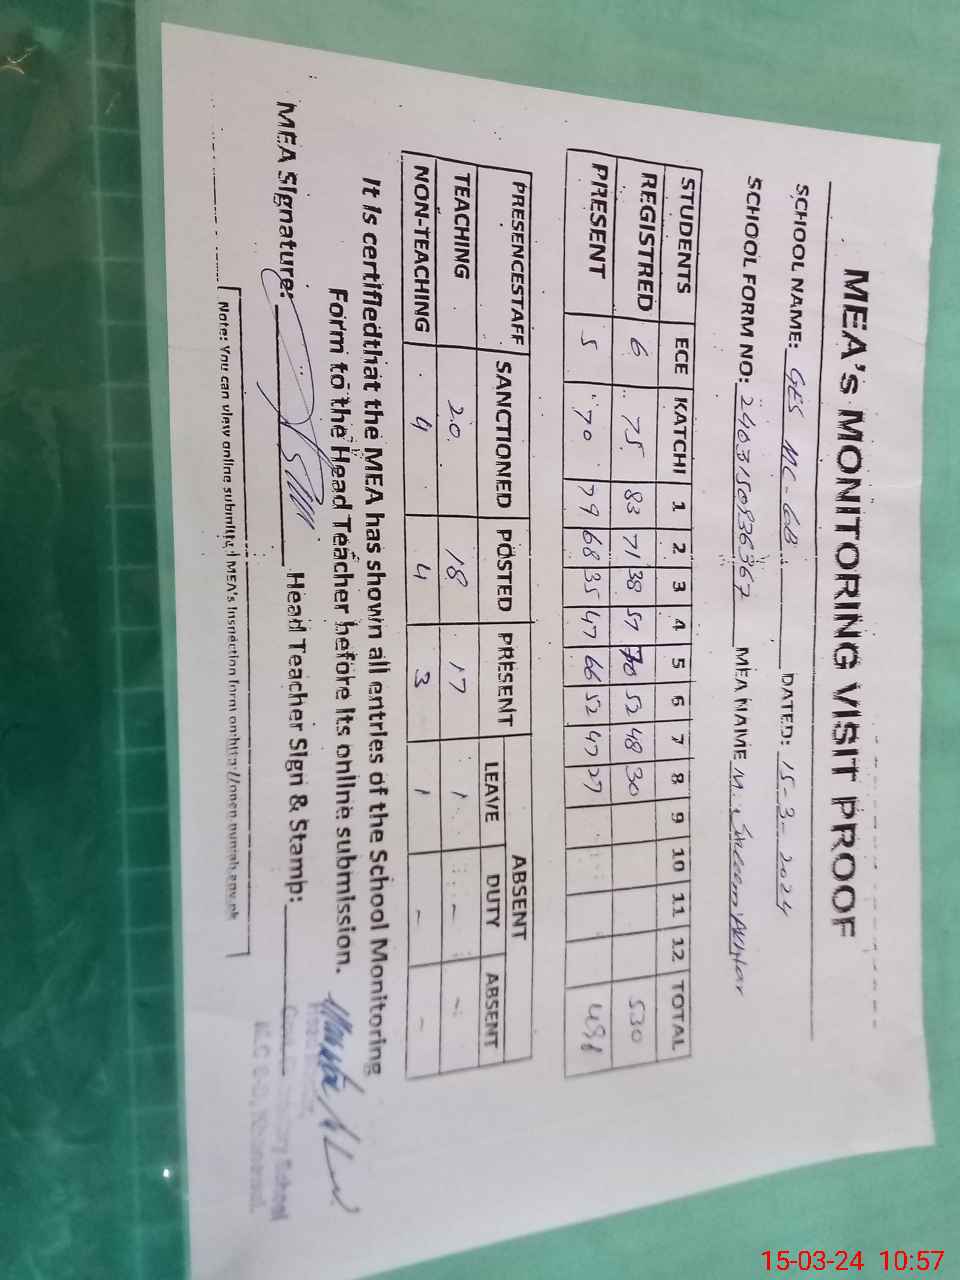 MEA's MONITORING VISIT PROOF
SCHOOL NAME: GES MC- DATED: 15-3-2024
SCHOOL FORM NO: 2403150836367 MEA NAME M.
STUDENTS ECE KATCHI 1 2 3 4 5 6 7 8 9 10 11 12 TOTAL
REGISTRED 6 75 83 71 38 57 70 52 48 30 530
PRESENT 5 70 79 68 35 47 66 52 47 27
PRESENCESTAFF SANCTIONED POSTED PRESENT ABSENT
LEAVE DUTY ABSENT
TEACHING 20 18 17 1 - -
NON-TEACHING 4 4 3 1 - -
It is certifiedthat the MEA has shown all entries of the School Monitoring
Form to the Head Teacher before its online submission.
MEA Signature: Head Teacher Sign & Stamp:
School
Note: You can view online submitted MEA's Inspection form on:http://open.punjab.gov.pk
15-03-24 10:57